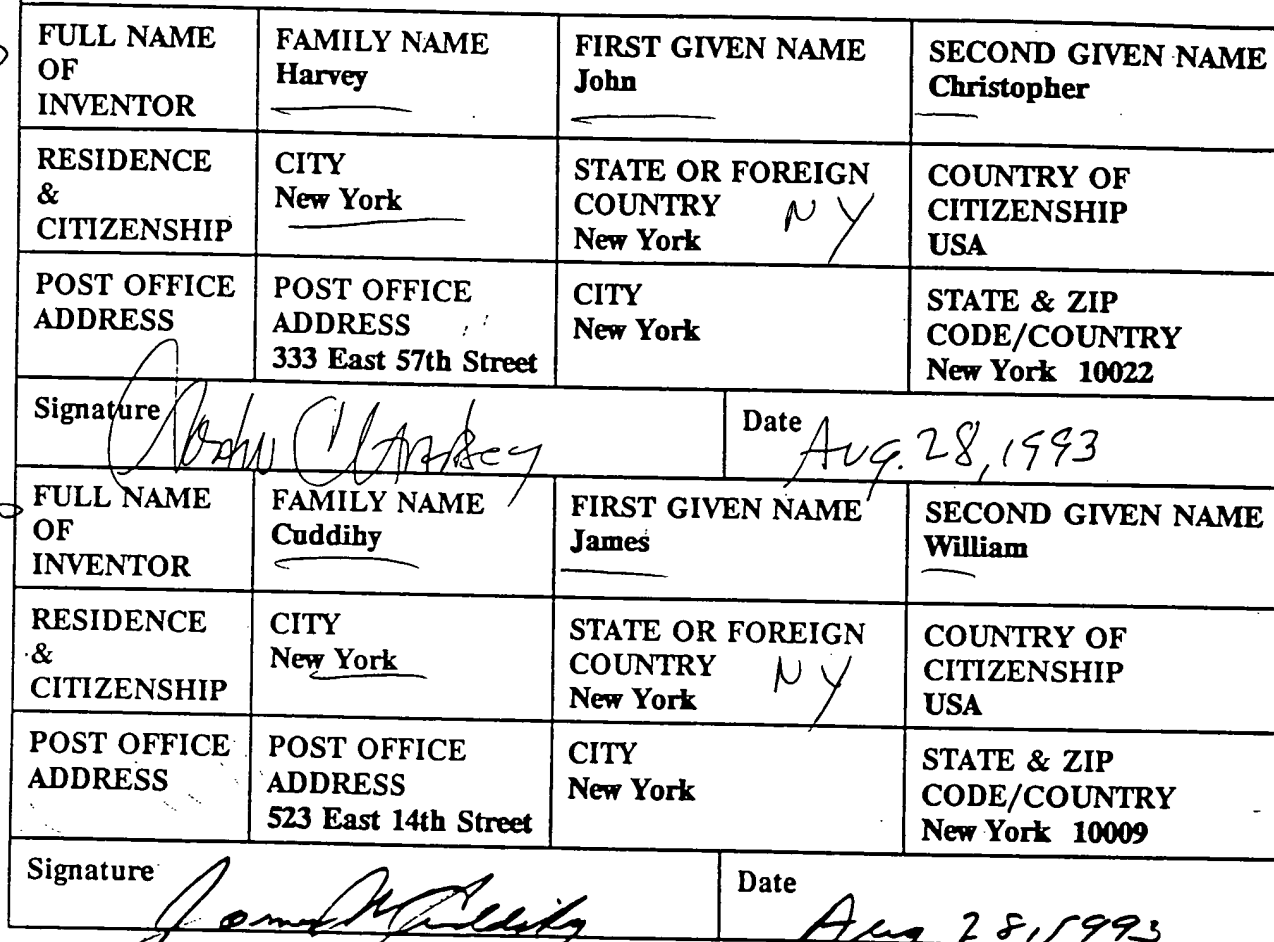 FULL NAME OF INVENTOR
FAMILY NAME
Harvey
FIRST GIVEN NAME
John
SECOND GIVEN NAME
Christopher
RESIDENCE & CITIZENSHIP
CITY
New York
STATE OR FOREIGN COUNTRY
New York
NY
COUNTRY OF CITIZENSHIP
USA
POST OFFICE ADDRESS
POST OFFICE ADDRESS
333 East 57th Street
CITY
New York
STATE & ZIP CODE/COUNTRY
New York 10022
Signature
John C Harvey
Date
Aug. 28, 1993
FULL NAME OF INVENTOR
FAMILY NAME
Cuddihy
FIRST GIVEN NAME
James
SECOND GIVEN NAME
William
RESIDENCE & CITIZENSHIP
CITY
New York
STATE OR FOREIGN COUNTRY
New York
NY
COUNTRY OF CITIZENSHIP
USA
POST OFFICE ADDRESS
POST OFFICE ADDRESS
523 East 14th Street
CITY
New York
STATE & ZIP CODE/COUNTRY
New York 10009
Signature
James W Cuddihy
Date
Aug 28, 1993